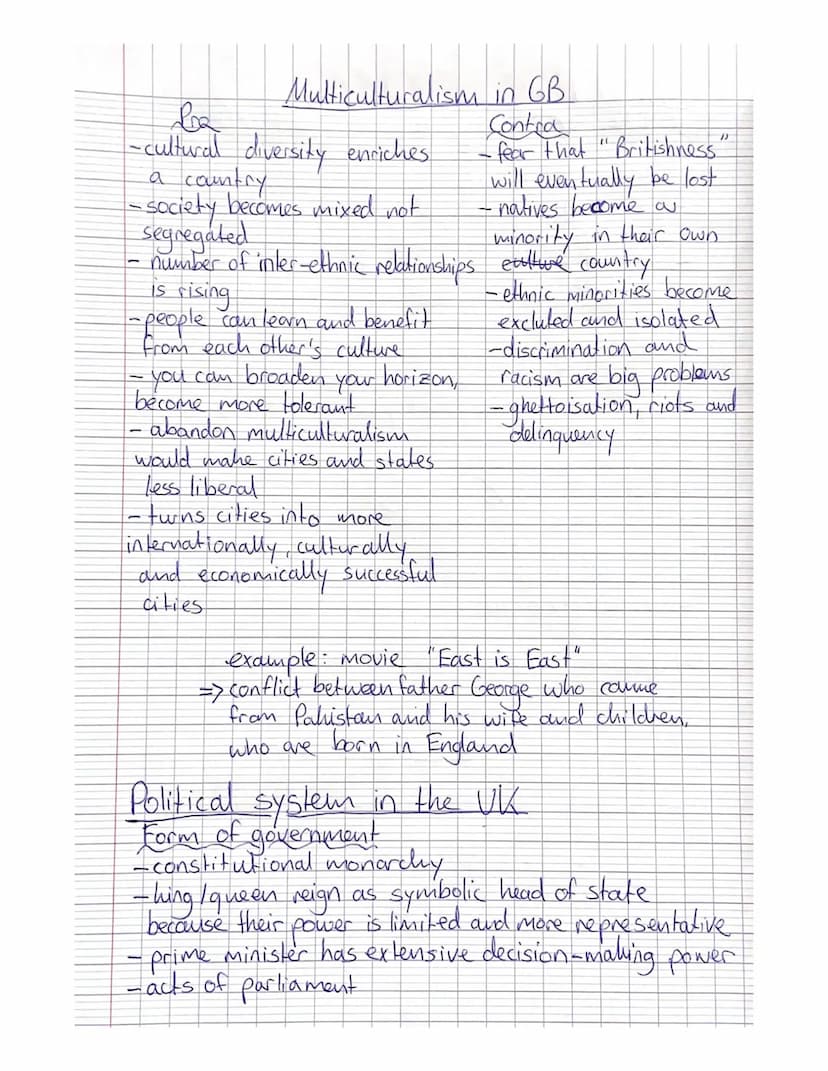 Multiculturalism in GB
Pro
-cultural diversity enriches
a country
-society becomes mixed not
segregated
- number of inter-ethnic relationships
is rising
-people can learn and benefit
from each other's culture
- you can broaden your horizon,
become more tolerant
- abandon multiculturalism
would make cities and states
less liberal
- turns cities into more
internationally, culturally
and economically successful
cities
Contra
- fear that "Britishness"
will eventually be lost
- natives become a
minority in their own
culture country
- ethnic minorities become
excluded and isolated
-discrimination and
racism are big problems
- ghettoisation, riots and
delinquency
example: movie "East is East"
=> conflict between father George who came
from Pakistan and his wife and children,
who are born in England
Political system in the UK
Form of government
-constitutional monarchy
-king/queen reign as symbolic head of state
because their power is limited and more representative
- prime minister has extensive decision-making power
-acts of parliament